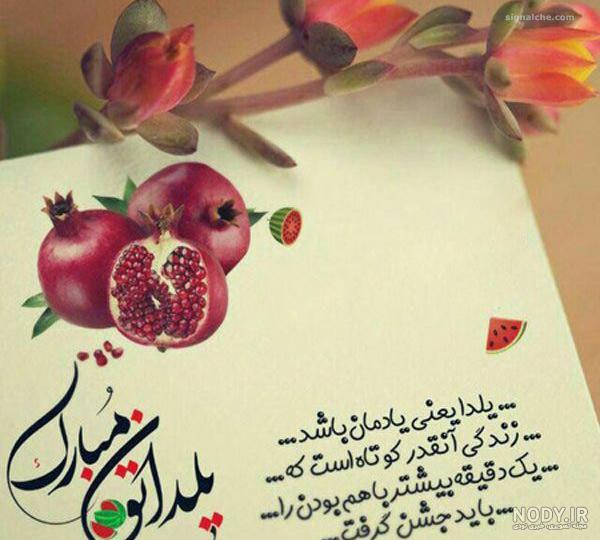 signalche.com
یلداتون مبارک
... یلدا یعنی یادمان باشد ...
... زندگی آنقدر کوتاه است که ...
... یک دقیقه بیشتر باهم بودن را ...
... باید جشن گرفت ...
NODY.IR
مجله تصویری، خبری نودی